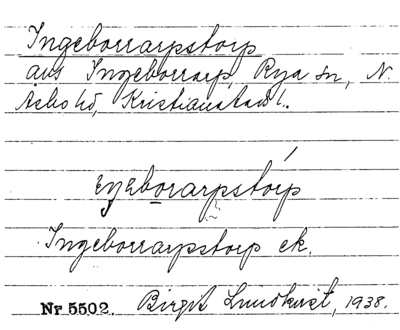 Ingeborrarpstorp
avs Ingeborrarp, Rya sn, N.
Åsbo hd, Kristianstad l.
eŋeborarpstórp
Ingeborrarpstorp ek.
Nr 5502. Birgit Lundkvist, 1938.